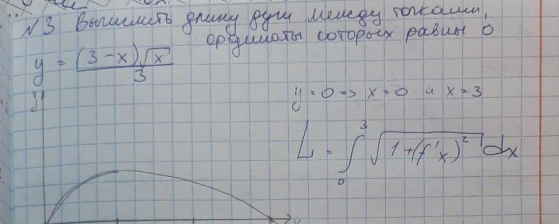 №3 Вычислить длину дуги между точками,
ординаты которых равны 0
y = (3-x)√x / 3
y'
y=0 => x=0 и x=3
L = ∫₀³ √(1+(f'x)²) dx